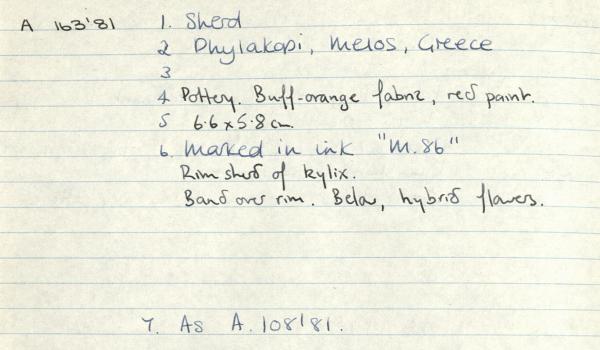 A 163'81 1. Sherd
2 Phylakopi, Melos, Greece
3
4 Pottery. Buff-orange fabric, red paint.
5 6.6 x 5.8 cm.
6. Marked in ink "M.86"
Rim sherd of kylix.
Band over rim. Below, hybrid flowers.
7. As A.108'81.